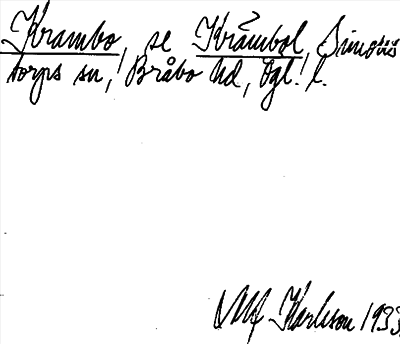 Krambo, se Krambol, Simons
torps sn, Bråbo hd, Ögl. l.
Ulf Karlsson 1933